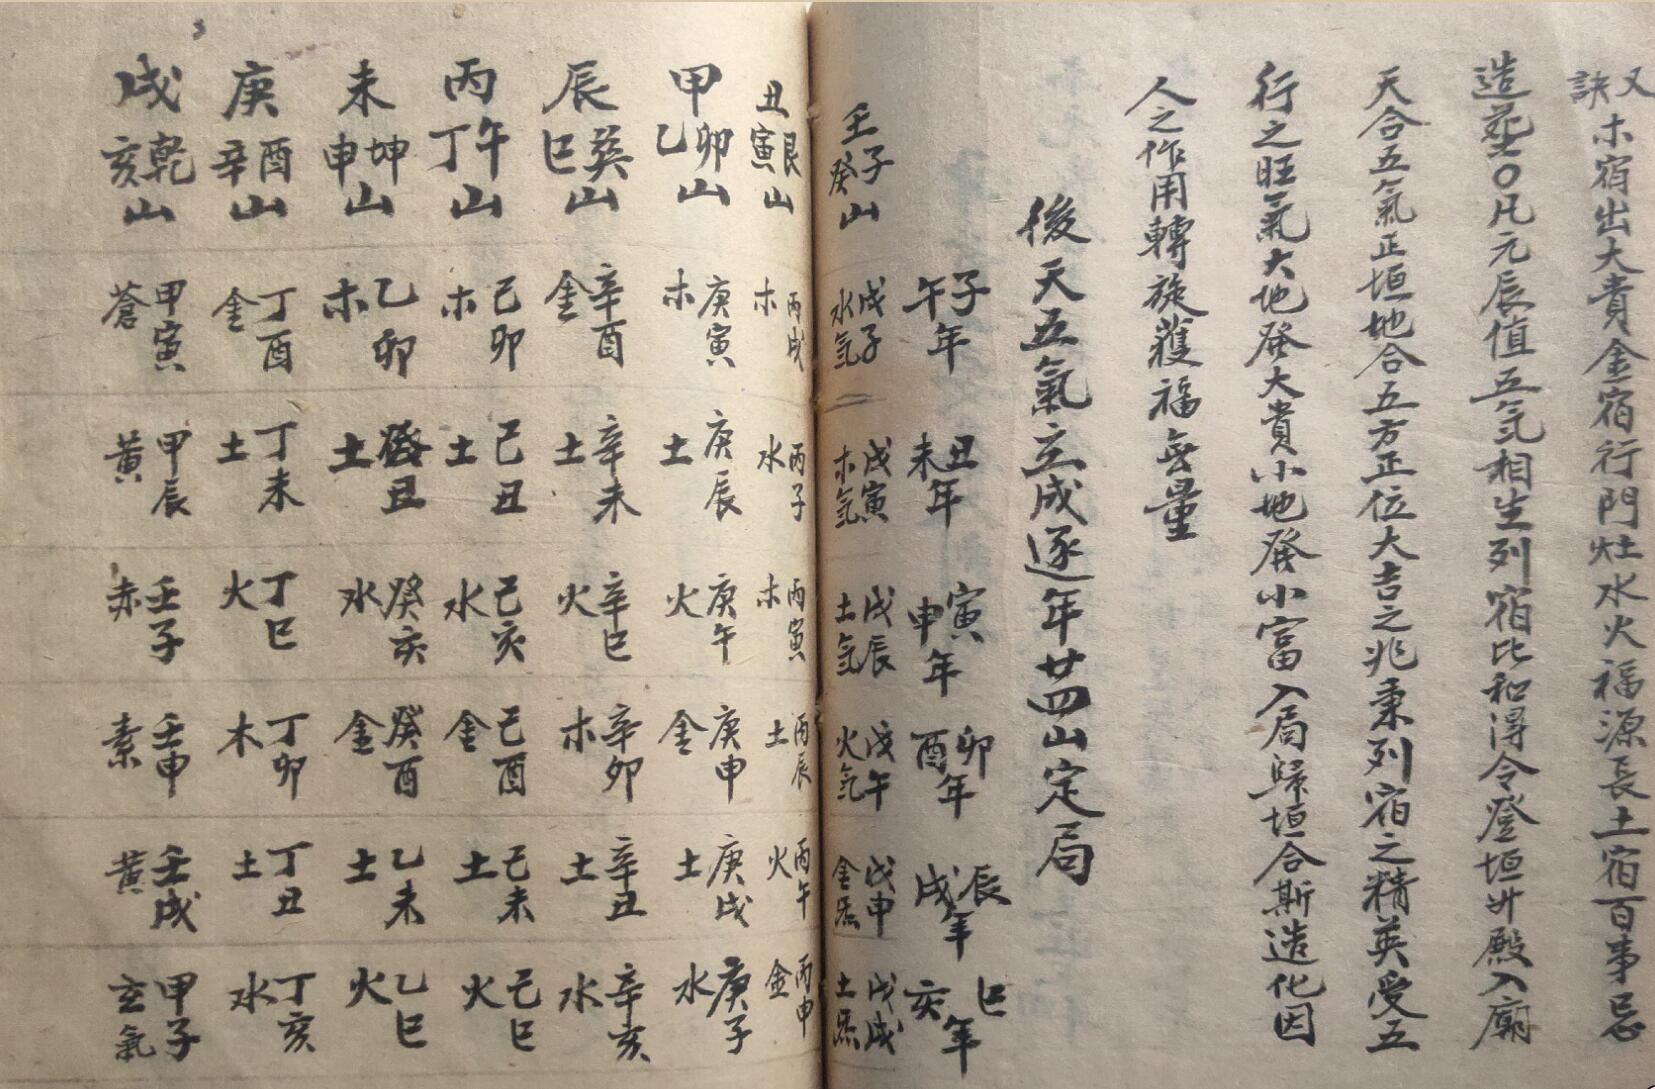 又訣木宿出大貴金宿行門灶水火福源長土宿百事忌
造葬○凡元辰值五气相生列宿比和得令登垣廾殿入廟
天合五氣正垣地合五方正位大吉之兆秉列宿之精英受五
行之旺氣大地發大貴小地發小富入局歸垣合斯造化因
人之作用轉旋獲福無量
後天五氣立成逐年廿四山定局
子午年 丑未年 寅申年 卯酉年 辰戌年 巳亥年
壬子癸山 戊子水气 戊寅木气 戊辰土气 戊午火气 戊申金炁 戊戌土炁
丑艮寅山 丙戌木 丙子水 丙寅木 丙辰土 丙午火 丙申金
甲卯乙山 庚寅木 庚辰土 庚午火 庚申金 庚戌土 庚子水
辰巽巳山 辛酉金 辛未土 辛巳火 辛卯木 辛丑土 辛亥水
丙午丁山 己卯木 己丑土 己亥水 己酉金 己未土 己巳火
未坤申山 乙卯木 丑土 癸亥水 癸酉金 乙未土 乙巳火
庚酉辛山 丁酉金 丁未土 丁巳火 丁卯木 丁丑土 丁亥水
戌乾亥山 甲寅蒼 甲辰黃 壬子赤 壬申素 壬戌黃 甲子玄氣